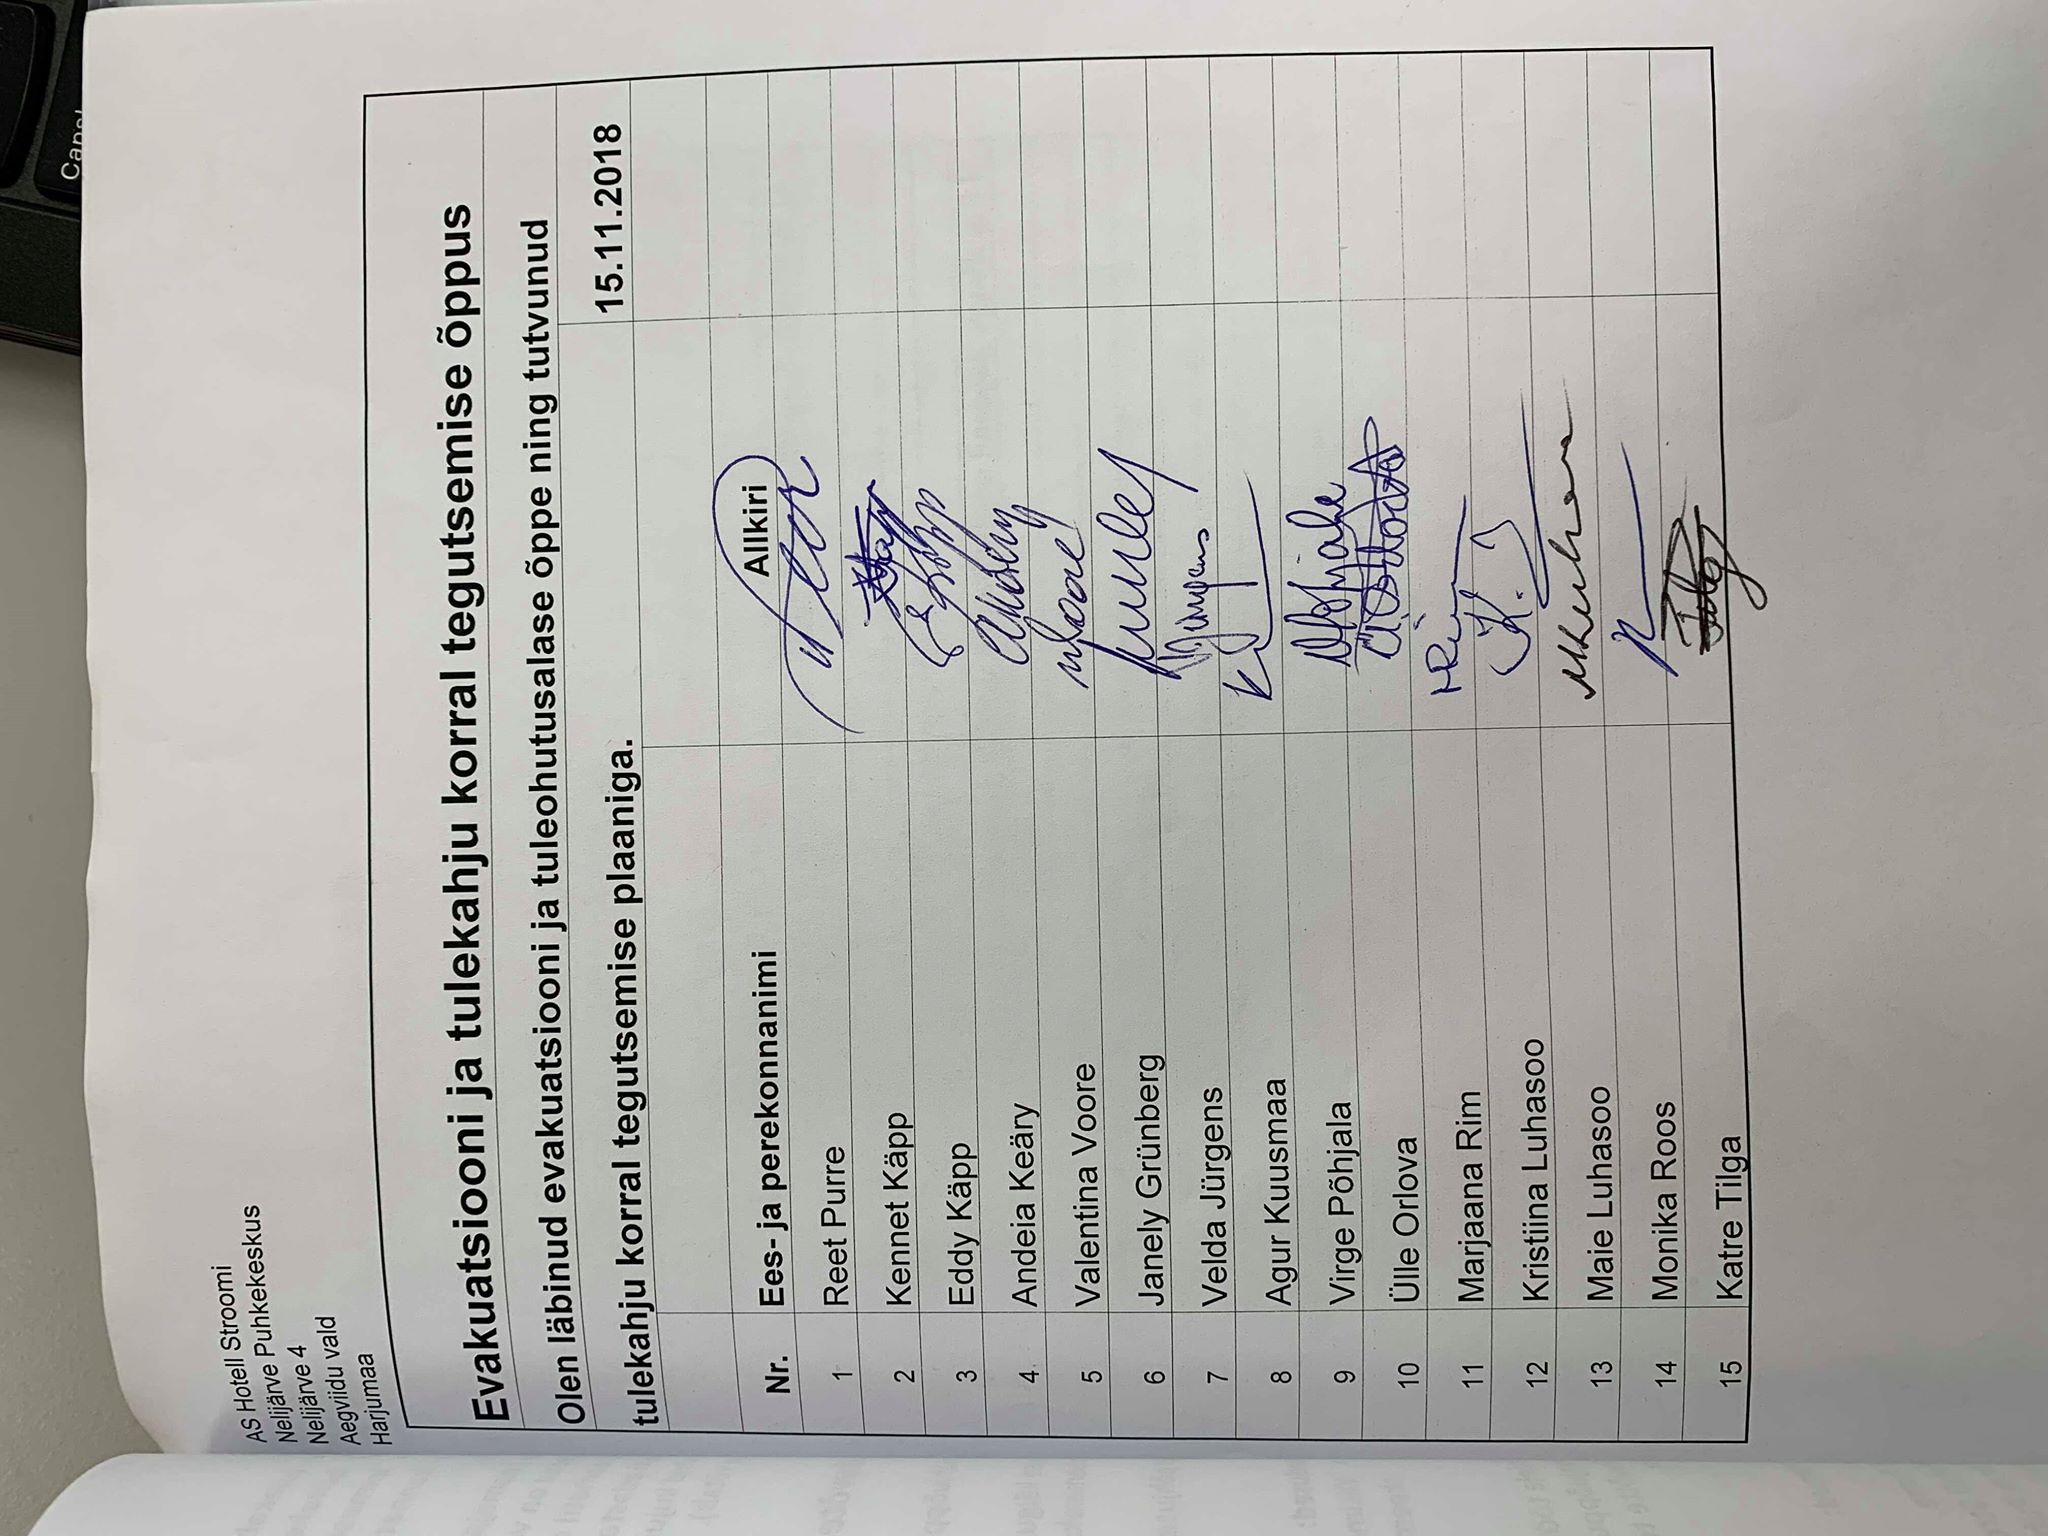 AS Hotell Stroomi
Nelijärve Puhkekeskus
Nelijärve 4
Aegviidu vald
Harjumaa
Evakuatsiooni ja tulekahju korral tegutsemise õppus
Olen läbinud evakuatsiooni ja tuleohutusalase õppe ning tutvunud
tulekahju korral tegutsemise plaaniga. 15.11.2018
Nr. Ees- ja perekonnanimi Allkiri
1 Reet Purre
2 Kennet Käpp
3 Eddy Käpp
4 Andeia Keäry
5 Valentina Voore
6 Janely Grünberg
7 Velda Jürgens
8 Agur Kuusmaa
9 Virge Põhjala
10 Ülle Orlova
11 Marjaana Rim
12 Kristiina Luhasoo
13 Maie Luhasoo
14 Monika Roos
15 Katre Tilga